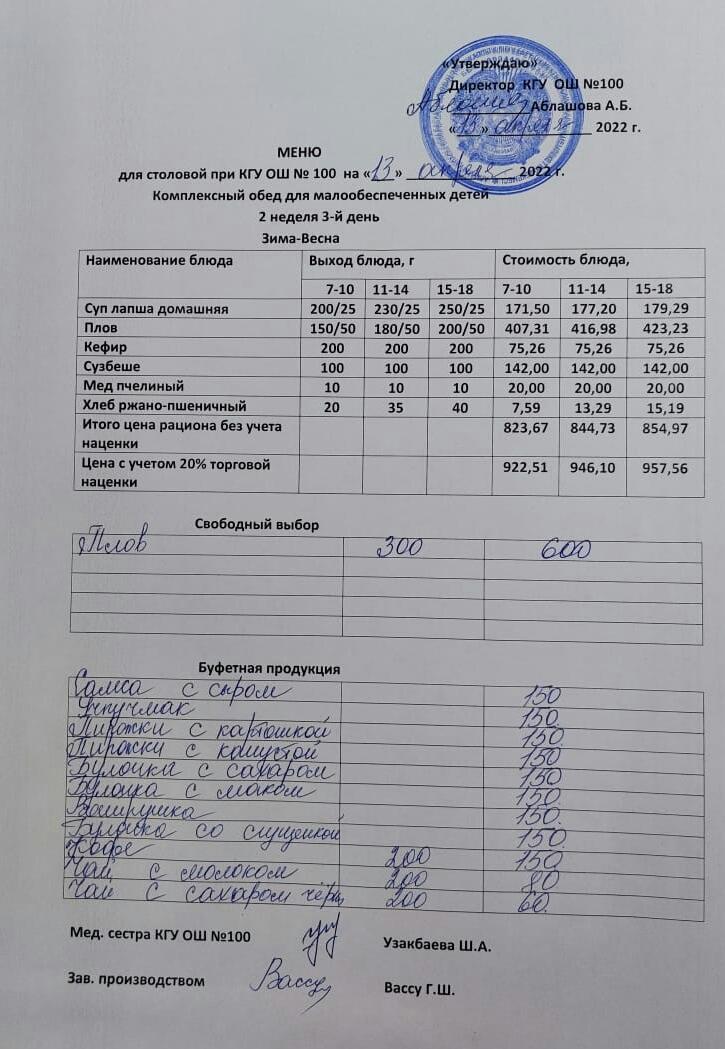 «Утверждаю»
Директор КГУ ОШ №100
Аблашова А.Б.
«13» апреля 2022 г.
МЕНЮ
для столовой при КГУ ОШ № 100 на «13» апреля 2022 г.
Комплексный обед для малообеспеченных детей
2 неделя 3-й день
Зима-Весна
Наименование блюда Выход блюда, г Стоимость блюда,
7-10 11-14 15-18 7-10 11-14 15-18
Суп лапша домашняя 200/25 230/25 250/25 171,50 177,20 179,29
Плов 150/50 180/50 200/50 407,31 416,98 423,23
Кефир 200 200 200 75,26 75,26 75,26
Сузбеше 100 100 100 142,00 142,00 142,00
Мед пчелиный 10 10 10 20,00 20,00 20,00
Хлеб ржано-пшеничный 20 35 40 7,59 13,29 15,19
Итого цена рациона без учета 823,67 844,73 854,97
наценки
Цена с учетом 20% торговой 922,51 946,10 957,56
наценки
Свободный выбор
Плов 300 600
Буфетная продукция
Самса с сыром 150
Учпучмак 150.
Пирожки с картошкой 150.
Пирожки с капустой 150
Булочка с сахаром 150
Булочка с маком 150.
Ватрушка 150.
Булочка со сгущенкой 150.
Кофе 200 150
Чай с молоком 200 80
Чай с сахаром черн 200 60.
Мед. сестра КГУ ОШ №100 Узакбаева Ш.А.
Зав. производством Вассу Вассу Г.Ш.